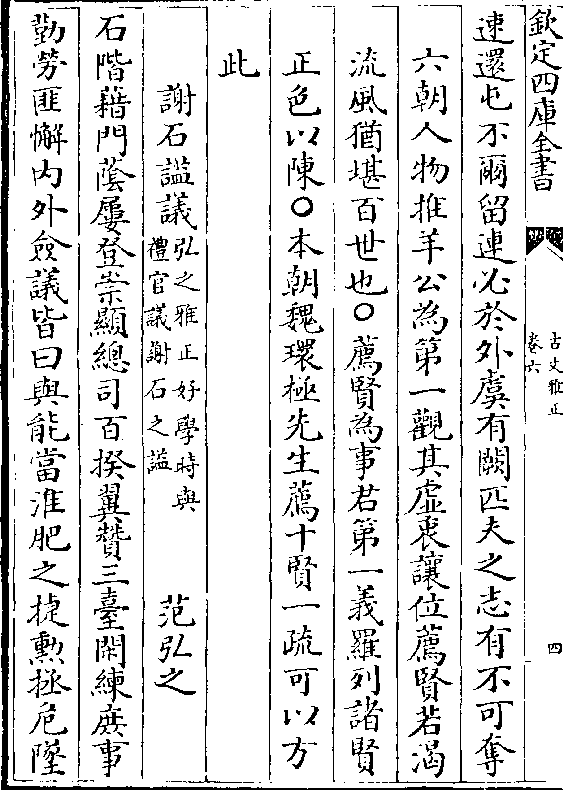 欽定四庫全書
古文雅正
卷六
四
速還屯不爾留連必於外虞有闕匹夫之志有不可奪
六朝人物推羊公為第一觀其虛衷讓位薦賢若渴
流風猶堪百世也○薦賢為事君第一義羅列諸賢
正色以陳○本朝魏環極先生薦十賢一疏可以方
此
謝石諡議弘之雅正好學時與
禮官議謝石之諡
范弘之
石階藉門蔭屢登崇顯總司百揆翼贊三臺閑練庶事
勤勞匪懈内外僉議皆曰與能當淮肥之捷勲拯危墜